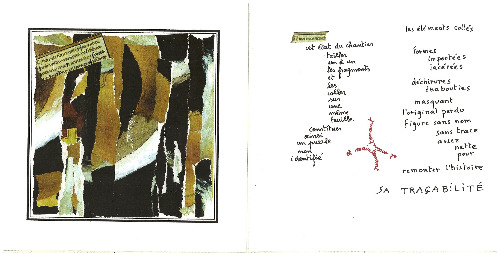 cet état du chantier
trier
un à un
les fragments
et
les
coller
sur
une
même
feuille
constituer
ainsi
un puzzle
non
identifié
les éléments collés
formes
importées
lacérées
déchirures
ébauches
masquant
l'original perdu
figure sans nom
sans trace
assez
nette
pour
remonter l'histoire
SA TRAÇABILITÉ